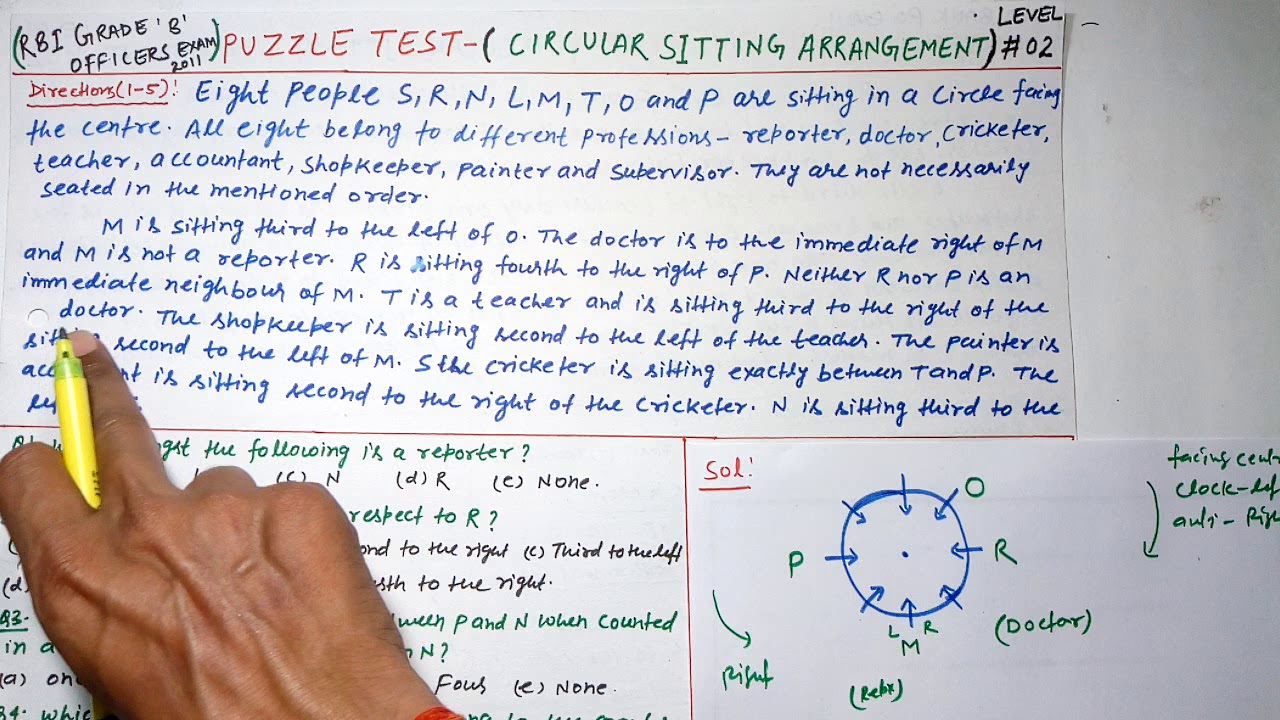 (RBI GRADE 'B' OFFICERS EXAM 2011) PUZZLE TEST-( CIRCULAR SITTING ARRANGEMENT) LEVEL #02
Directions(1-5): Eight People S, R, N, L, M, T, O and P are sitting in a Circle facing
the centre. All eight belong to different Professions- reporter, doctor, Cricketer,
teacher, accountant, Shopkeeper, Painter and Supervisor. They are not necessarily
seated in the mentioned order.
M is sitting third to the left of O. The doctor is to the immediate right of M
and M is not a reporter. R is sitting fourth to the right of P. Neither R nor P is an
immediate neighbour of M. T is a teacher and is sitting third to the right of the
doctor. The Shopkeeper is sitting second to the left of the teacher. The painter is
second to the left of M. S the cricketer is sitting exactly between T and P. The
is sitting second to the right of the Cricketer. N is sitting third to the
the following is a reporter?
(c) N (d) R (e) None.
respect to R?
to the right (c) Third to the left
(d) to the right.
Q3. P and N when Counted
in N?
(a) Four (e) None.
Sol:
O
P
R
L M R
(Doctor)
(Repx)
Right
facing
Clock-
anti-